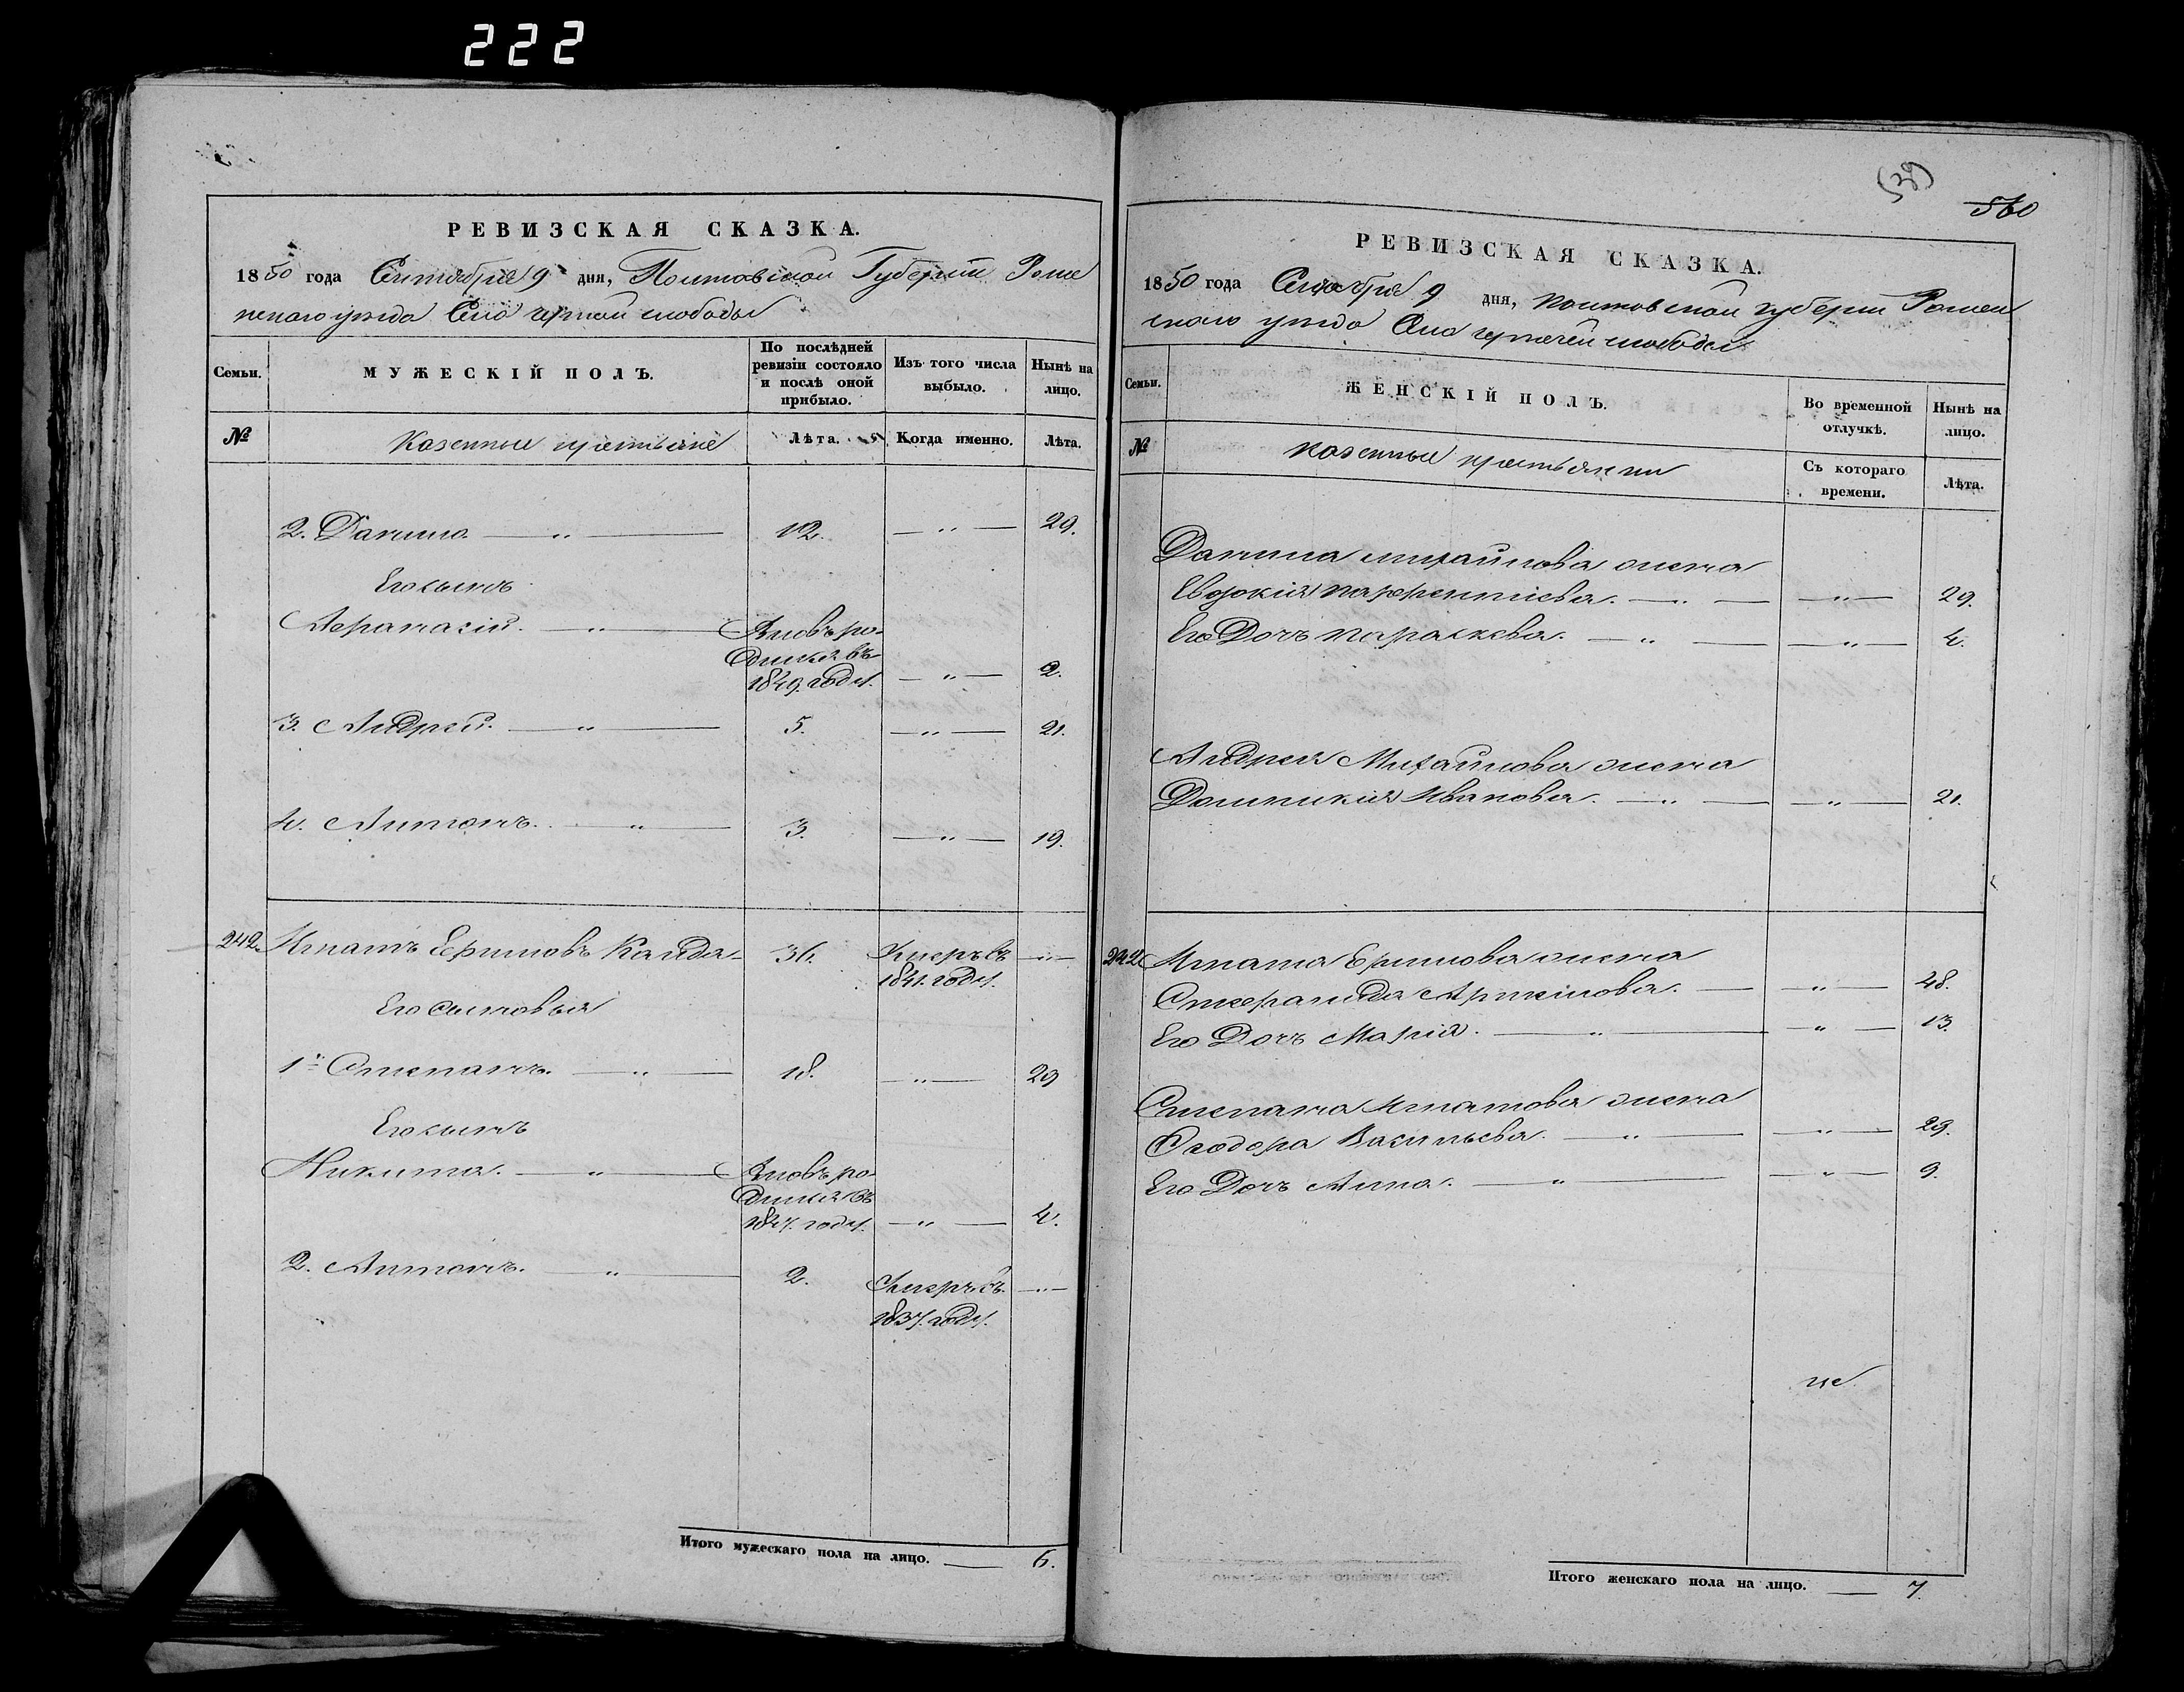 222
РЕВИЗСКАЯ СКАЗКА.
1850 года Сентября 9 дня, Полтавской Губерніи Роме
нскаго уѣзда Села слободы
Семьи.
МУЖЕСКІЙ ПОЛЪ.
По послѣдней ревизіи состояло и послѣ оной прибыло.
Изъ того числа выбыло.
Нынѣ на лицо.
№
Казенные крестьяне
Лѣта.
Когда именно.
Лѣта.
2. Данило. — „ — 12. — „ — 29.
Его сынъ
Афанасій. — „ — Вновь ро-
дился въ
1849. году. — „ — 2.
3. Андрей. — „ — 5. — „ — 21.
4. Антонъ. — „ — 3. — „ — 19.
242. Игнатъ Ефимовъ Кайда- 36. Умеръ въ — „ —
1841. году.
Его сыновья
1й Степанъ. — „ — 18. — „ — 29
Его сынъ
Никита. — „ — Вновь ро-
дился въ
1847. году. — „ — 4.
2. Антонъ. — „ — 2. Умеръ въ — „ —
1837. году.
Итого мужескаго пола на лицо. — 6.
560
РЕВИЗСКАЯ СКАЗКА.
1850 года Сентября 9 дня, Полтавской губерніи Ромен
скаго уѣзда Села слободы
Семьи.
ЖЕНСКІЙ ПОЛЪ.
Во временной отлучкѣ.
Нынѣ на лицо.
№
Казенные крестьянки
Съ котораго времени.
Лѣта.
Данила Михайлова жена
Евдокія Парфентіева. — „ — — „ — 29.
Его Дочь Параскева. — „ — — „ — 4.
Андрея Михайлова жена
Домникія Иванова. — „ — — „ — 21.
242 Игната Ефимова жена
Стефанида — — „ — 48.
Его Дочь Марія. — „ — — „ — 13.
Степана Игнатова жена
Феодора Васильева. — „ — — „ — 29.
Его Дочь Анна. — „ — — „ — 9.
Итого женскаго пола на лицо. — 7.